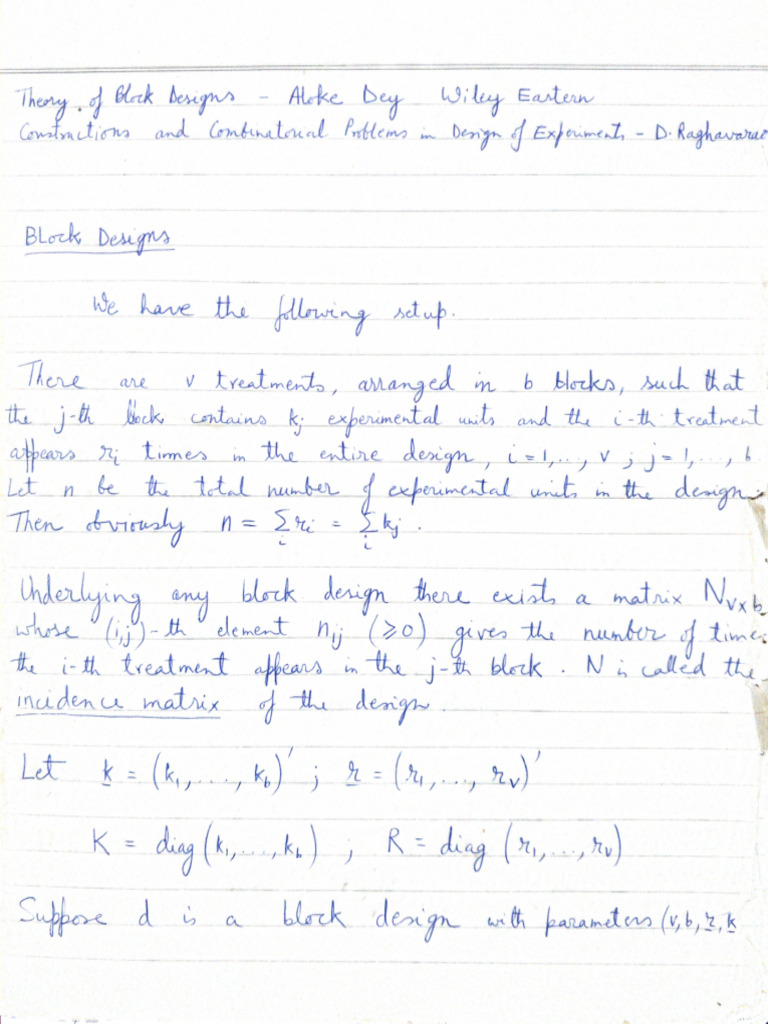 Theory of Block Designs - Aloke Dey Wiley Eastern
Constructions and Combinatorial Problems in Design of Experiments - D. Raghavarao
Block Designs
We have the following setup.
There are v treatments, arranged in b blocks, such that
the j-th block contains kj experimental units and the i-th treatment
appears ri times in the entire design, i = 1,..., v ; j = 1,..., b
Let n be the total number of experimental units in the design.
Then obviously n = Σ ri = Σ kj .
i i
Underlying any block design there exists a matrix Nv×b
whose (i,j)-th element nij (≥0) gives the number of time
the i-th treatment appears in the j-th block. N is called the
incidence matrix of the design.
Let k = (k1,..., kb)' ; r = (r1,..., rv)'
K = diag (k1,..., kb) ; R = diag (r1,..., rv)
Suppose d is a block design with parameters (v, b, r, k